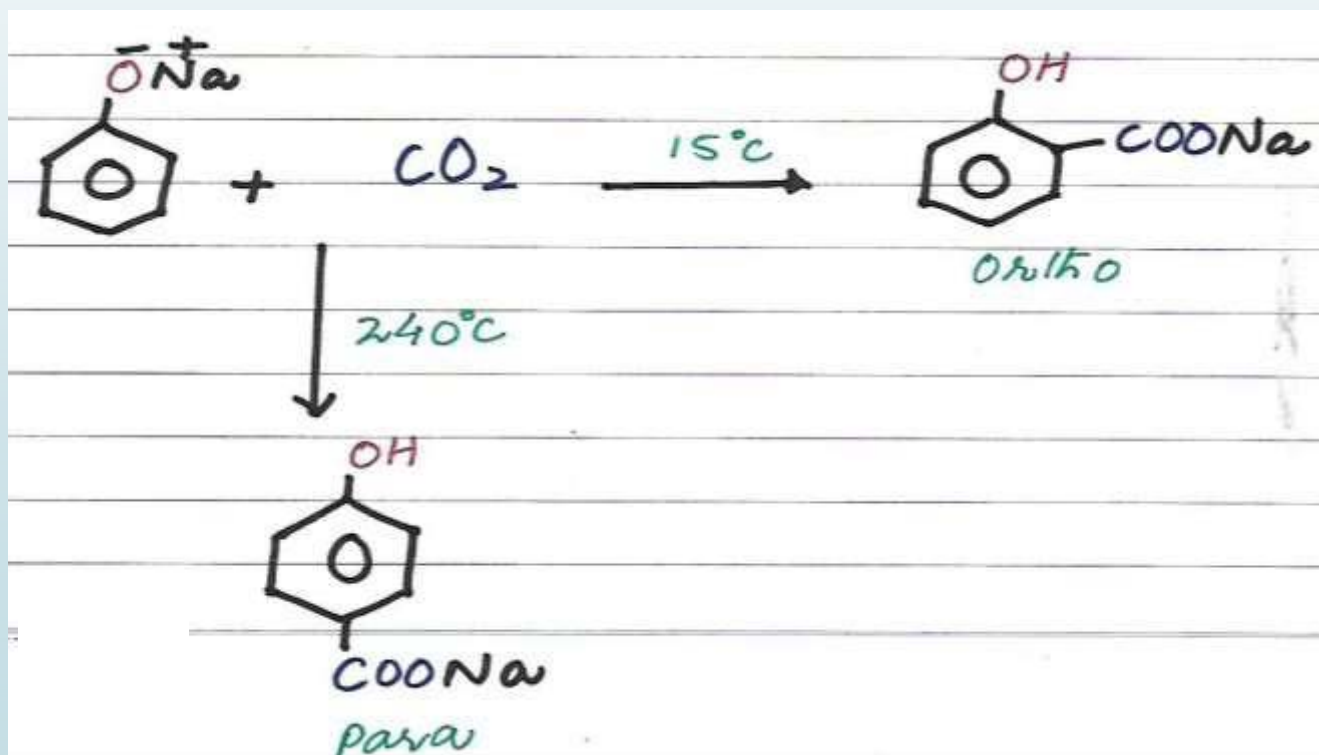 ŌNa⁺
+ CO₂
15°C
OH
COONa
ortho
240°C
OH
COONa
para